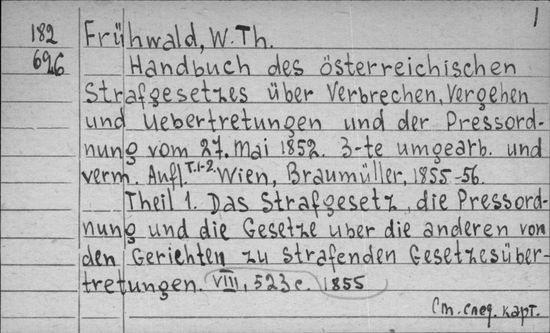 1
182
696
Frühwald, W. Th.
Handbuch des österreichischen
Strafgesetzes über Verbrechen, Vergehen
und Uebertretungen und der Pressord-
nung vom 27. Mai 1852. 3-te umgearb. und
verm. Aufl. T. 1-2 Wien, Braumüller, 1855-56.
Theil 1. Das Strafgesetz, die Pressord-
nung und die Gesetze uber die anderen von
den Gerichten zu strafenden Gesetzesüber-
tretungen. VIII, 523 с. 1855
См. след. карт.